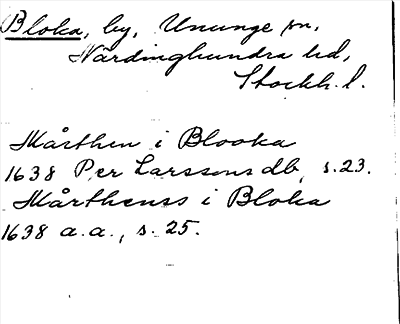 Bloka, by, Ununge sn,
Närdinghundra hd,
Stockh. l.
Mårthen i Blooka
1638 Per Larssons db, s. 23.
Mårthenss i Bloka
1638 a. a., s. 25.